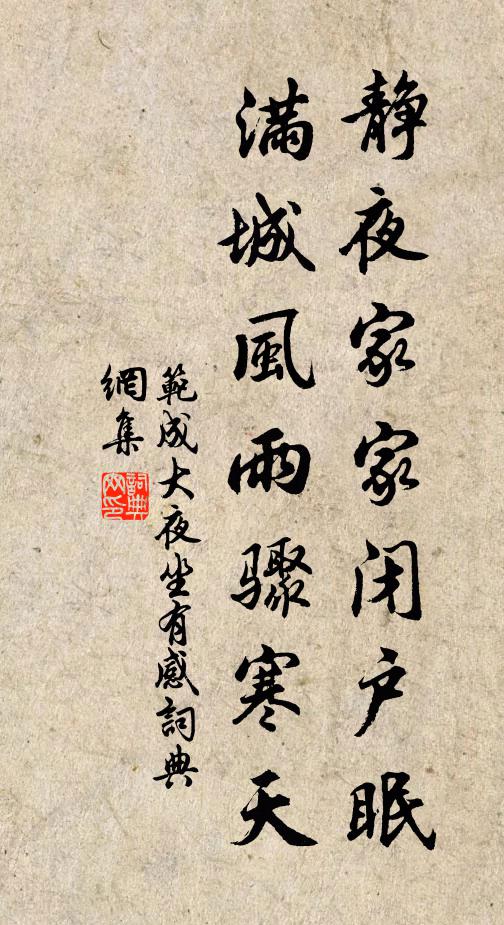 静夜家家闭户眠
满城風雨骤寒天
範成大夜坐有感詞典
網集
詞典
网印